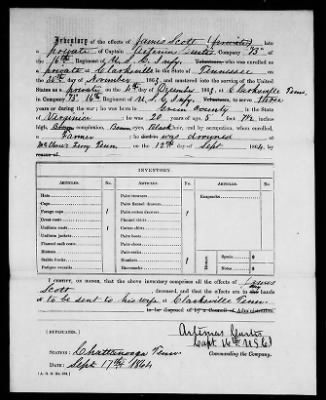 Inventory of the effects of James Scott (private) late
a private of Captain Artemus Curtis Company "B"
16th Regiment of U. S. C. Infy. Volunteers, who was enrolled
as a private at Clarksville in the State of Tennessee
on the day of November 186 , and mustered into the service of the United
States as a private on the day of December 186 , at Clarksville Tenn.
in Company "B" 16th Regiment of U. S. C. Infy. Volunteers, to serve three
years or during the war; he was born in County in the State of
Virginia; he was 20 years of age, 5 feet
inches high, Brown complexion, Brown eyes, Black hair, and by occupation, when enrolled,
a Farmer; he was drowned
Ferry Tenn on the 12th day of Sept 1864.
INVENTORY.
ARTICLES. No. ARTICLES. No. ARTICLES. No.
Hats
Caps
Forage caps 1
Great coats
Uniform coats 1
Uniform jackets
Flannel sack coats
Blouses
Stable frocks
Fatigue overalls
Pairs trowsers
Pairs flannel drawers
Pairs cotton drawers 1
Flannel shirts
Cotton shirts
Pairs boots
Pairs shoes
Pairs socks
Blankets 1
Haversacks
Knapsacks
Specie $ 0
Notes $ 0
I CERTIFY, ON HONOR, that the above inventory comprises all the effects of James
Scott deceased, and that the effects are in my hands
to be sent to his wife at Clarksville Tenn.
to be disposed of by a Council of Administration.
[DUPLICATES.]
Artemus Curtis
Capt. 16th U S C I
Commanding the Company.
STATION: Chattanooga Tenn
DATE: Sept 17th 1864